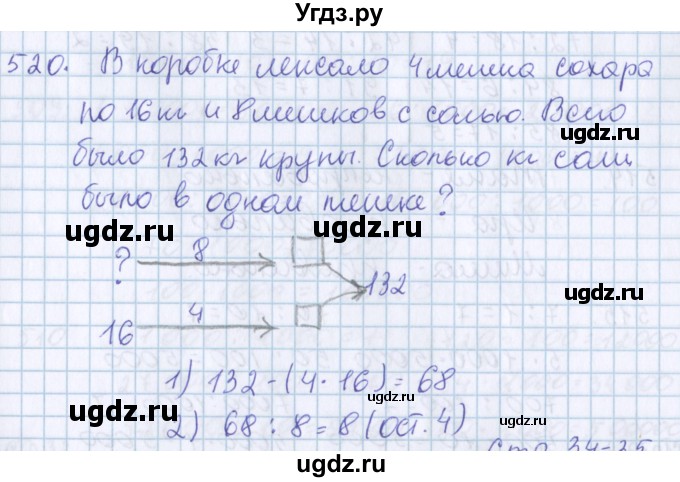 Угдз.ру
520. В коробке лежало 4 мешка сахара
по 16 кг и 8 мешков с солью. Всего
было 132 кг крупы. Сколько кг соли
было в одном мешке?
? 8 132
16 4
1) 132 - (4 · 16) = 68
2) 68 : 8 = 8 (ост. 4)
стр 34-35
ugdz.ru
ugdz.ru
ugdz.ru
ugdz.ru
ugdz.ru
ugdz.ru
ugdz.ru
ugdz.ru
ugdz.ru